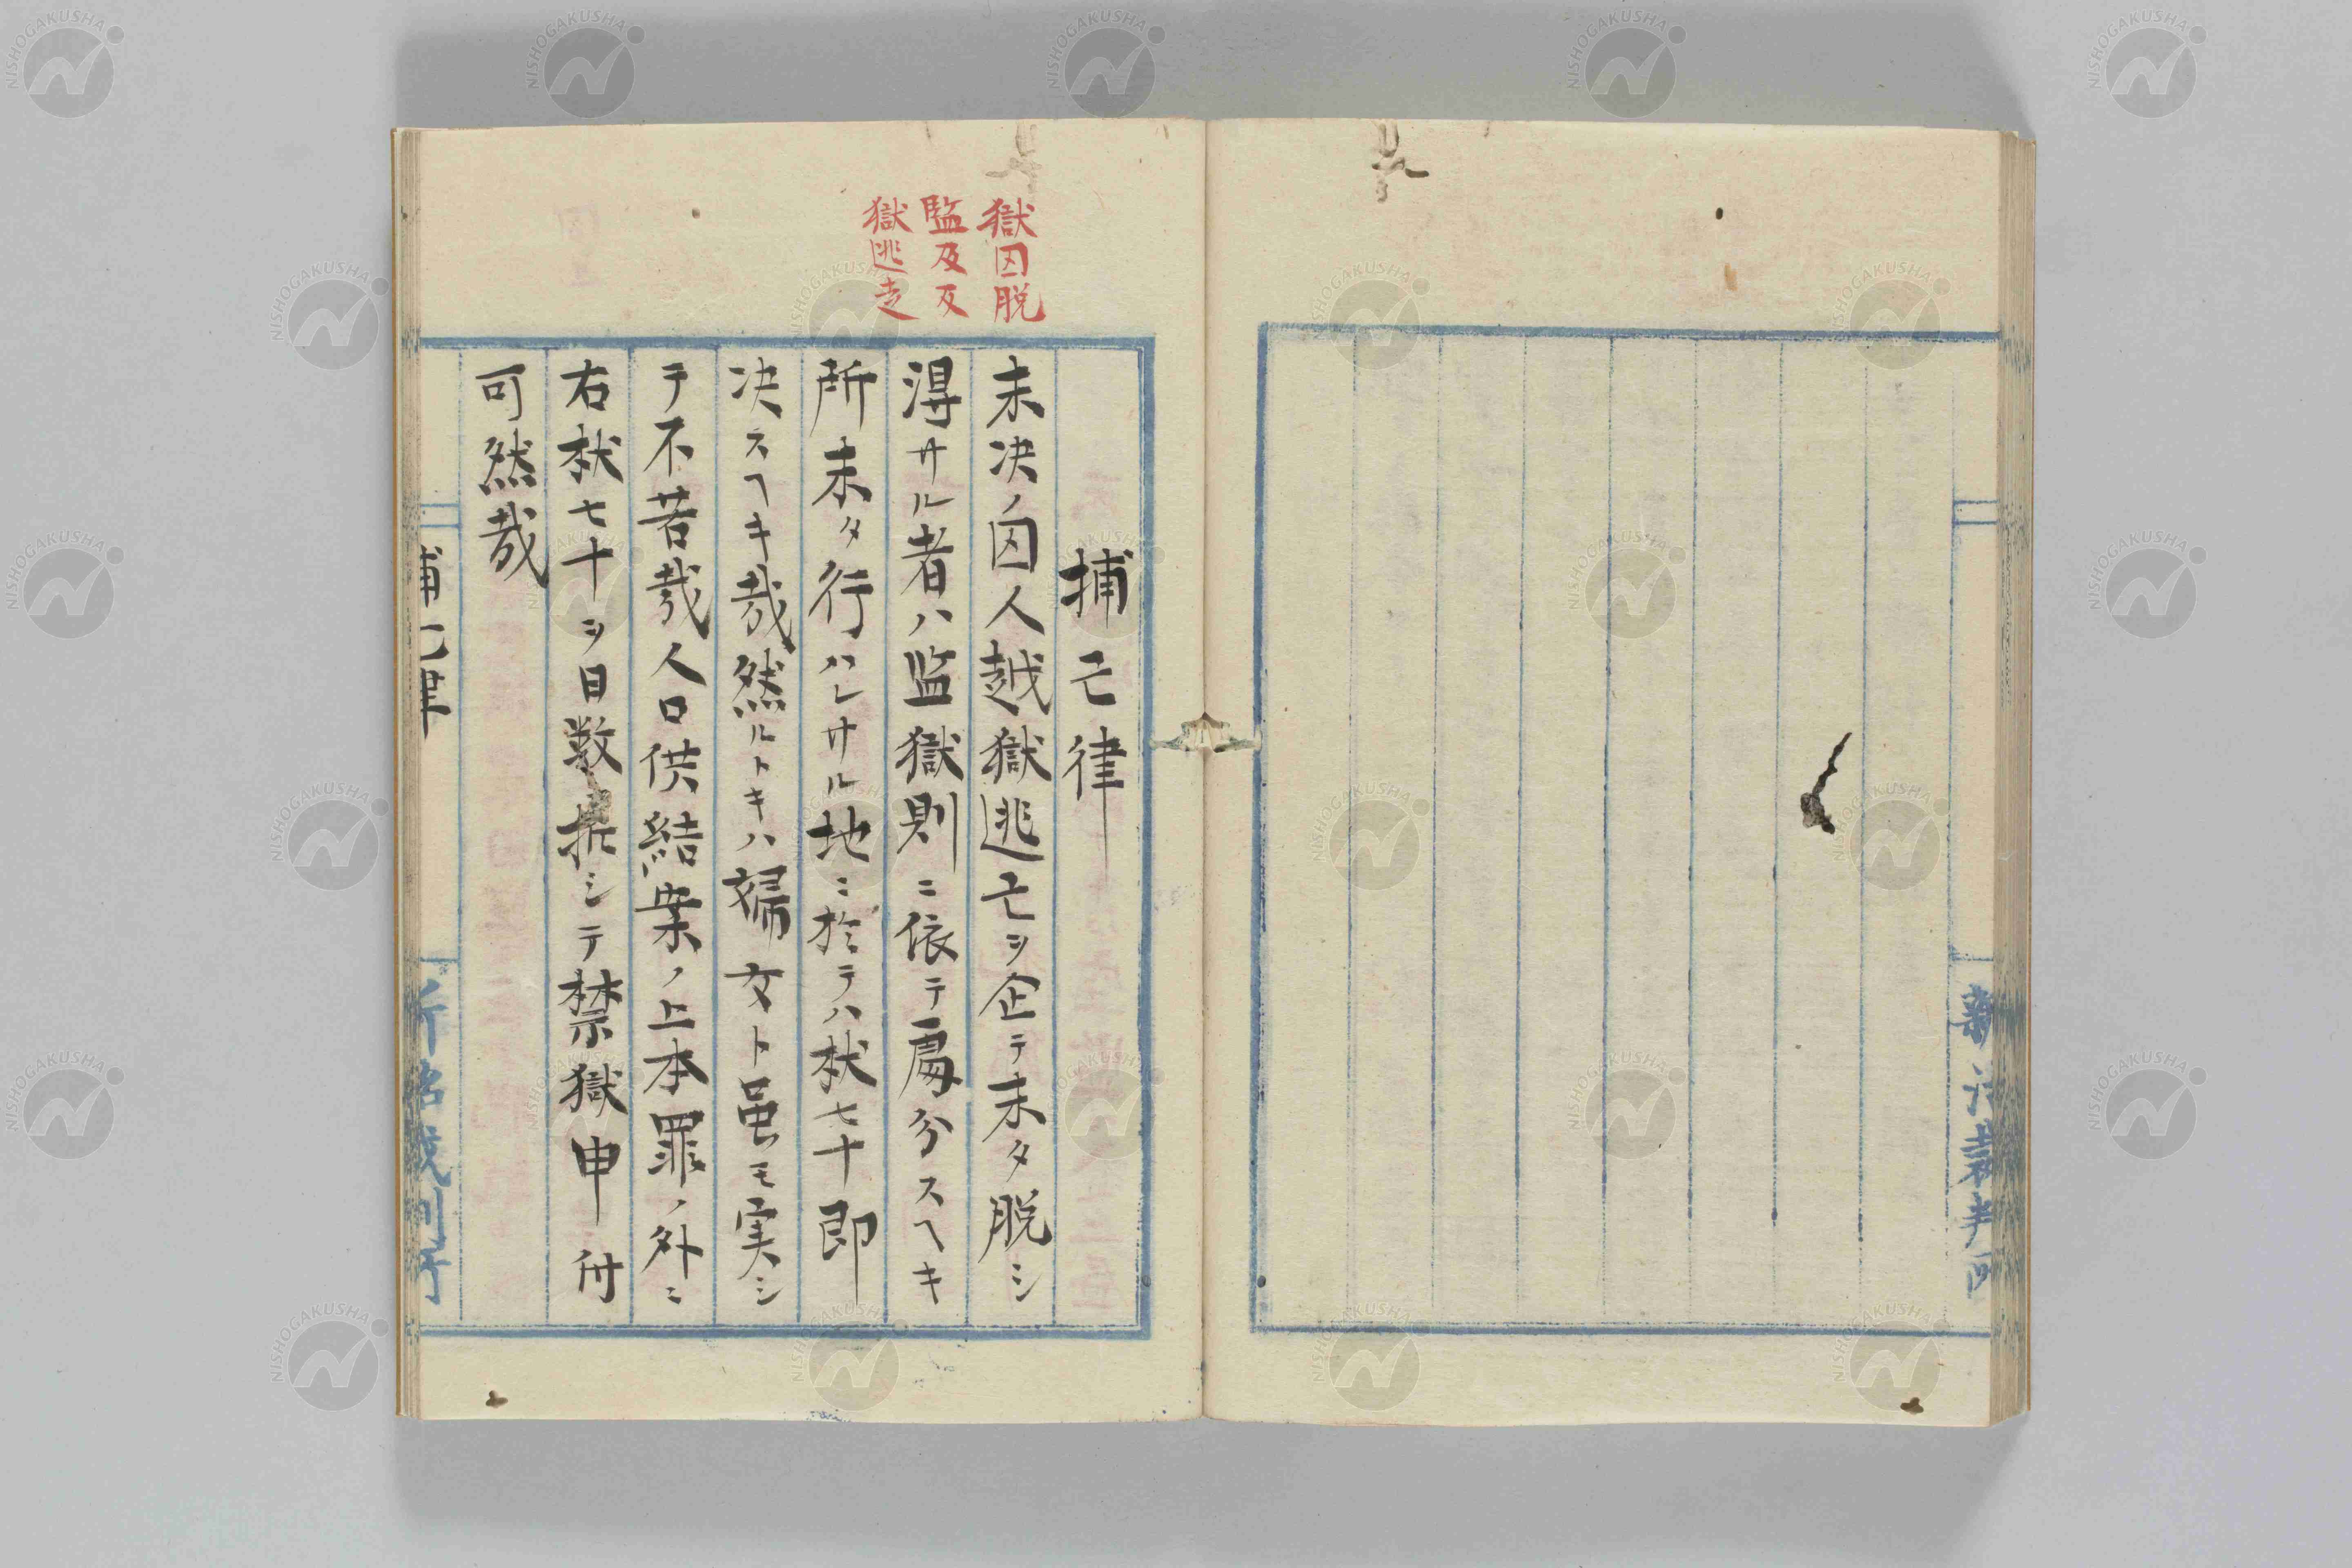 新治裁判所
獄囚脱
監及反
獄逃走
捕亡律
未決ノ囚人越獄逃亡ヲ企テ未タ脱シ
得サル者ハ監獄則ニ依テ處分スヘキ
所未タ行ハレサル地ニ於テハ杖七十即
决スヘキ哉然ルトキハ婦女ト虽モ実シ
テ不苦哉人口供結案ノ上本罪ノ外ニ
右杖七十ヲ日数折シテ禁獄申付
可然哉
捕亡律
新治裁判所